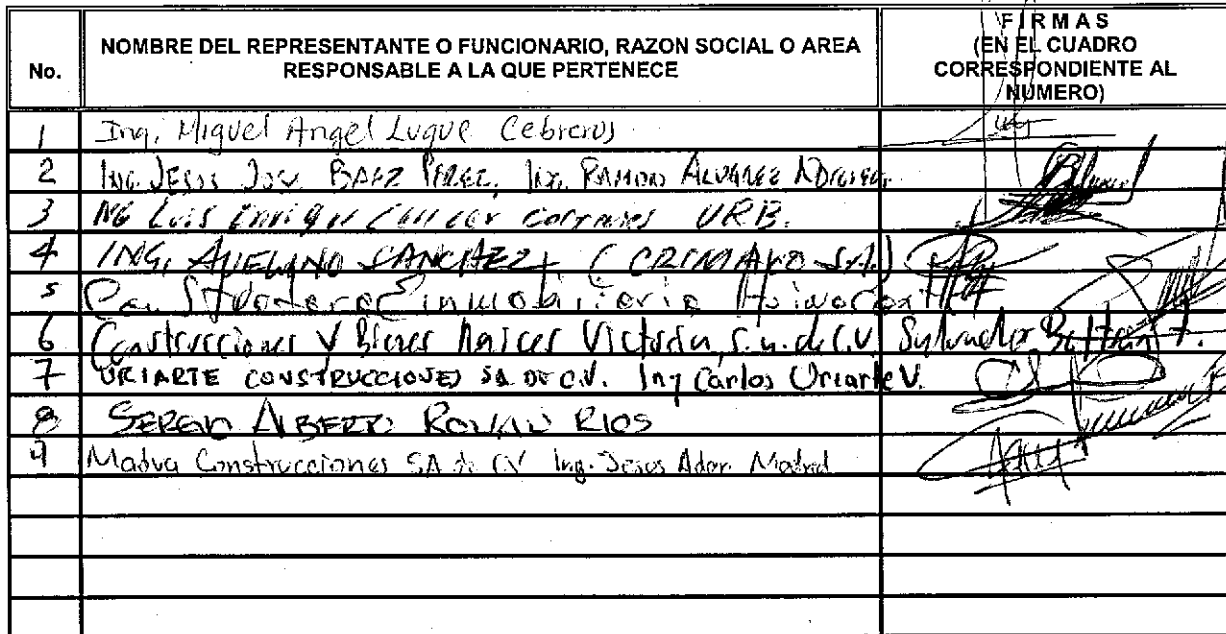 No.
NOMBRE DEL REPRESENTANTE O FUNCIONARIO, RAZON SOCIAL O AREA
RESPONSABLE A LA QUE PERTENECE
F I R M A S
(EN EL CUADRO
CORRESPONDIENTE AL
NÚMERO)
1 Ing. Miguel Angel Luque Cebreros
2 ING. JESUS BAEZ PEREZ, Ing. RAMON ALVAREZ
3 ING Luis Enrique URB.
4 ING, AVELINO SANCHEZ (CRIMAYO S.A.)
5 inmobiliaria
6 Construcciones Y Bienes Raices Victoria, S.A. de C.V Salvador Beltran
7 URIARTE CONSTRUCCIONES SA DE C.V. Ing Carlos Uriarte V.
8 SERGIO ALBERTO ROMAN RIOS
9 Madva Construcciones SA de CV Ing. Jesus Adan Madrid